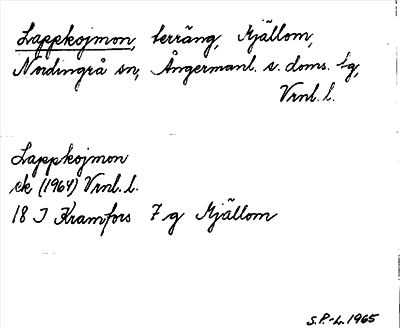 Lappkojmon, terräng, Mjällom,
Nordingrå sn, Ångermanl. s. doms. tg,
Vrnl. l.
Lappkojmon
ek (1964) Vrnl. l.
18 J Kramfors 7 g Mjällom
S.P.-L. 1965